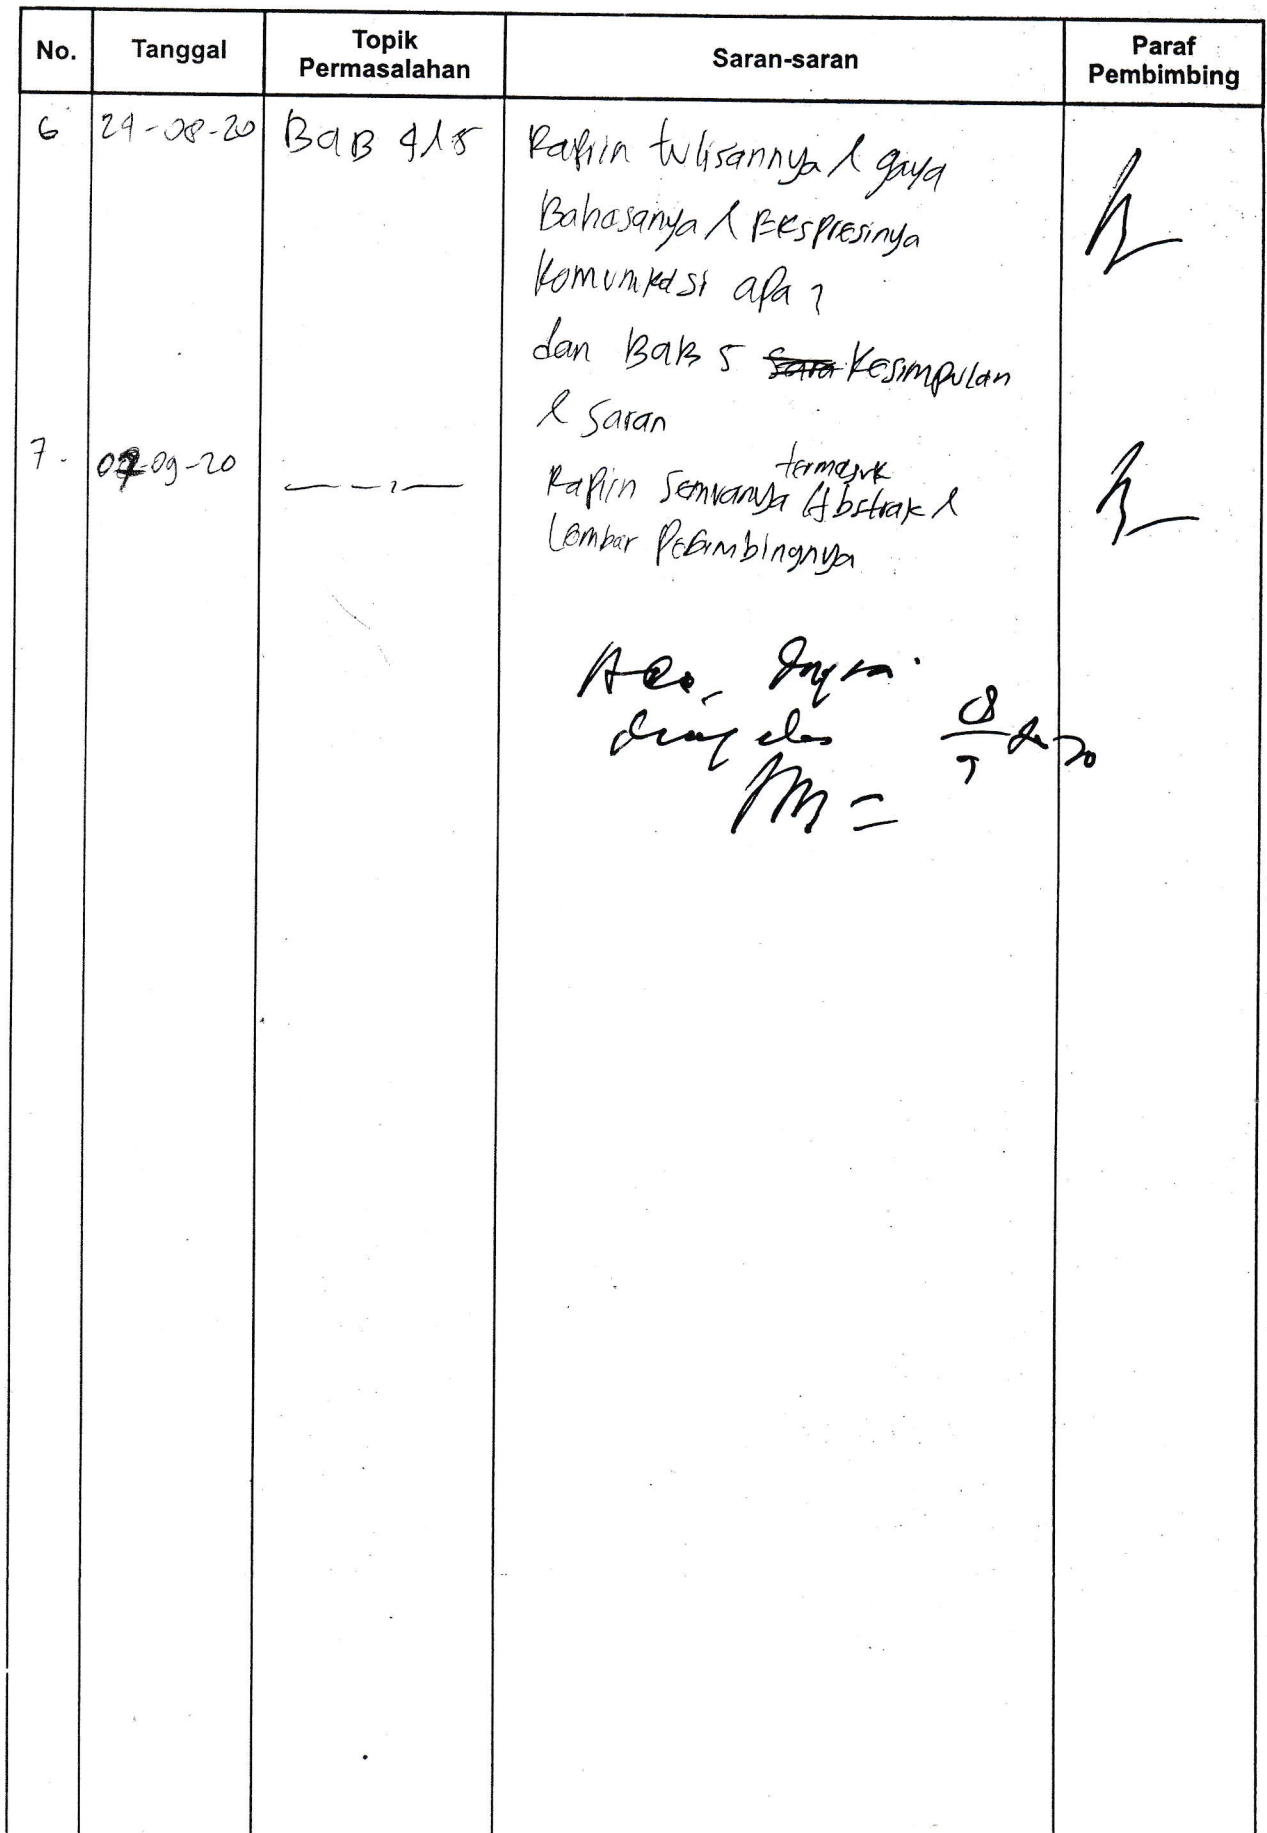 No. Tanggal Topik Permasalahan Saran-saran Paraf Pembimbing
6 29-08-20 BAB 4 & 5 Rapiin tulisannya & gaya
Bahasanya & Ekspresinya
komunikasi apa ?
dan BAB 5 Kesimpulan
& saran
7. 07-09-20 Rapiin semuanya termasuk Abstrak &
Lembar Pebimbingnya